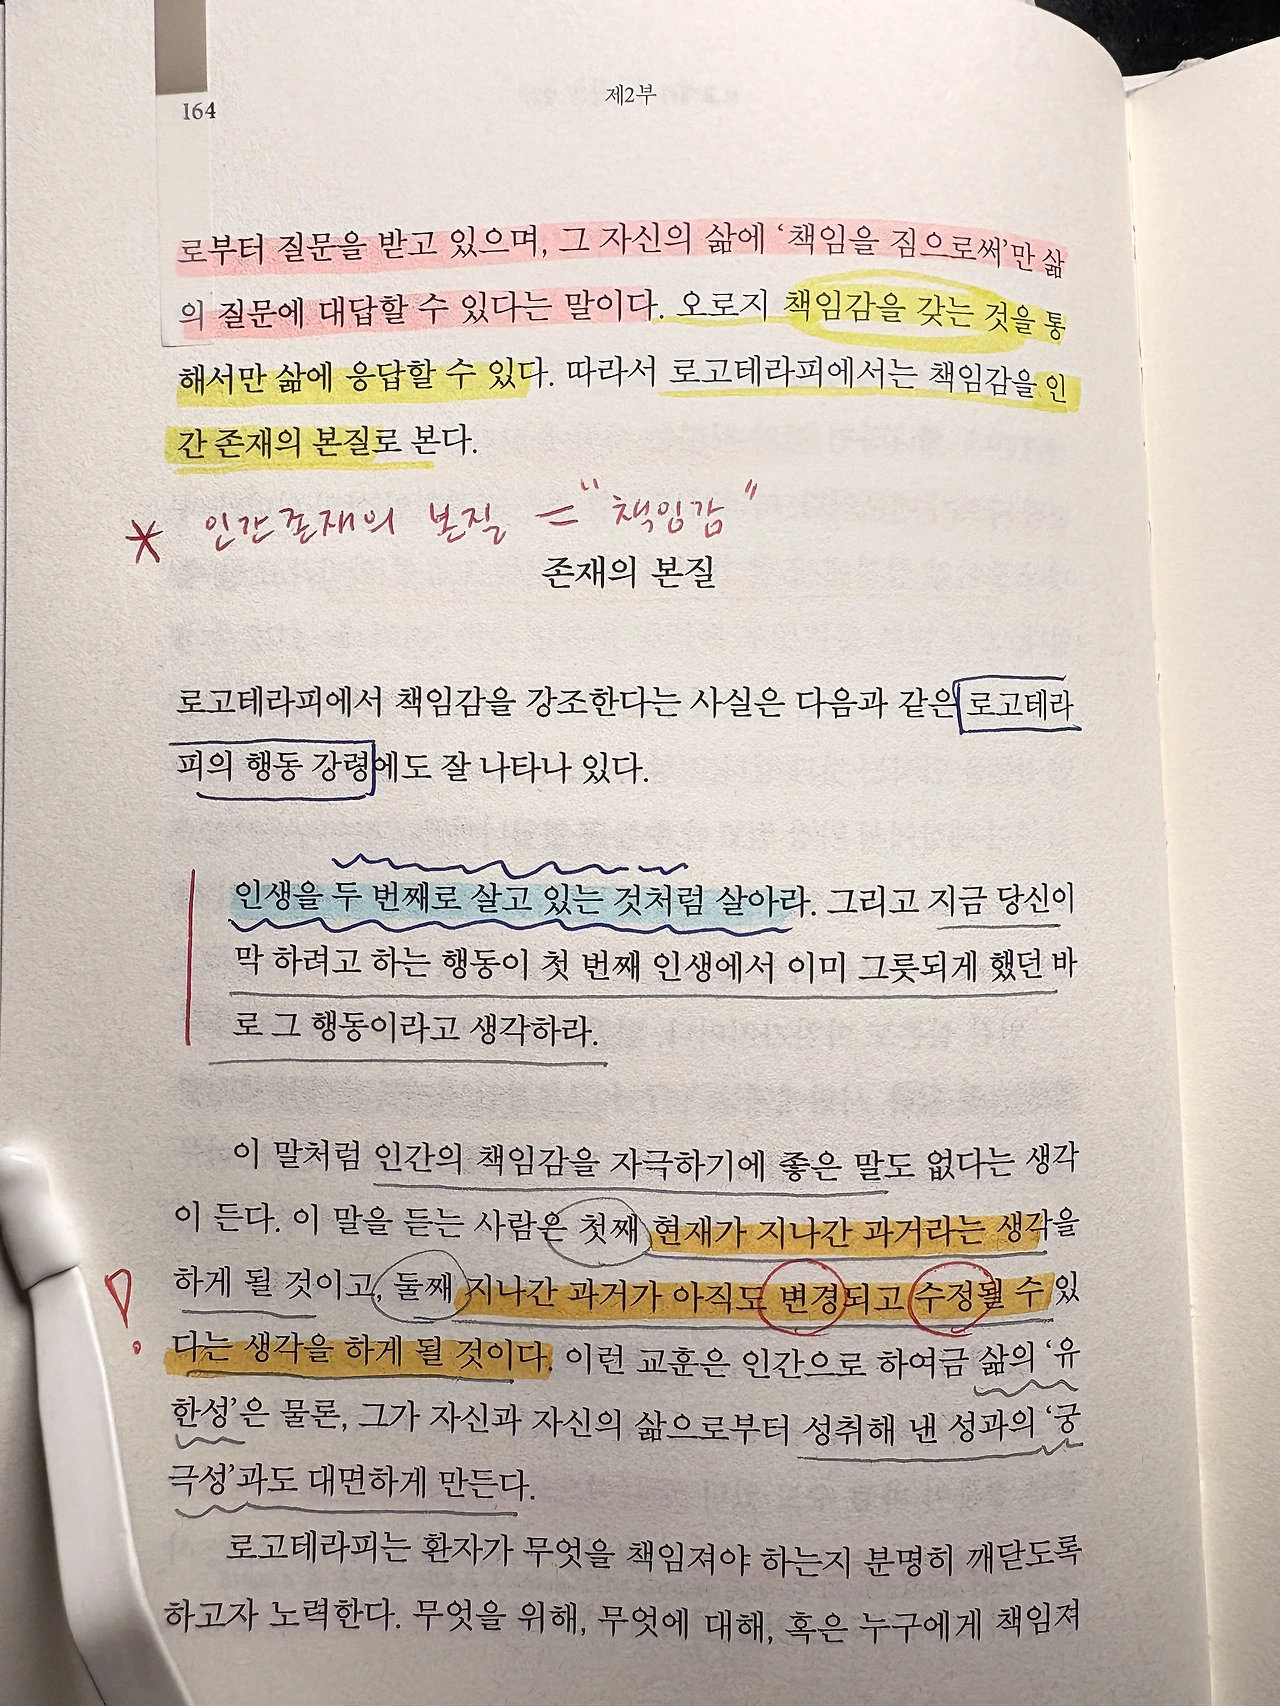 164
제2부
로부터 질문을 받고 있으며, 그 자신의 삶에 ‘책임을 짐으로써’만 삶
의 질문에 대답할 수 있다는 말이다. 오로지 책임감을 갖는 것을 통
해서만 삶에 응답할 수 있다. 따라서 로고테라피에서는 책임감을 인
간 존재의 본질로 본다.
* 인간존재의 본질 = "책임감"
존재의 본질
로고테라피에서 책임감을 강조한다는 사실은 다음과 같은 로고테라
피의 행동 강령에도 잘 나타나 있다.
인생을 두 번째로 살고 있는 것처럼 살아라. 그리고 지금 당신이
막 하려고 하는 행동이 첫 번째 인생에서 이미 그릇되게 했던 바
로 그 행동이라고 생각하라.
이 말처럼 인간의 책임감을 자극하기에 좋은 말도 없다는 생각
이 든다. 이 말을 듣는 사람은 첫째 현재가 지나간 과거라는 생각을
하게 될 것이고, 둘째 지나간 과거가 아직도 변경되고 수정될 수 있
다는 생각을 하게 될 것이다. 이런 교훈은 인간으로 하여금 삶의 ‘유
한성’은 물론, 그가 자신과 자신의 삶으로부터 성취해 낸 성과의 ‘궁
극성’과도 대면하게 만든다.
로고테라피는 환자가 무엇을 책임져야 하는지 분명히 깨닫도록
하고자 노력한다. 무엇을 위해, 무엇에 대해, 혹은 누구에게 책임져